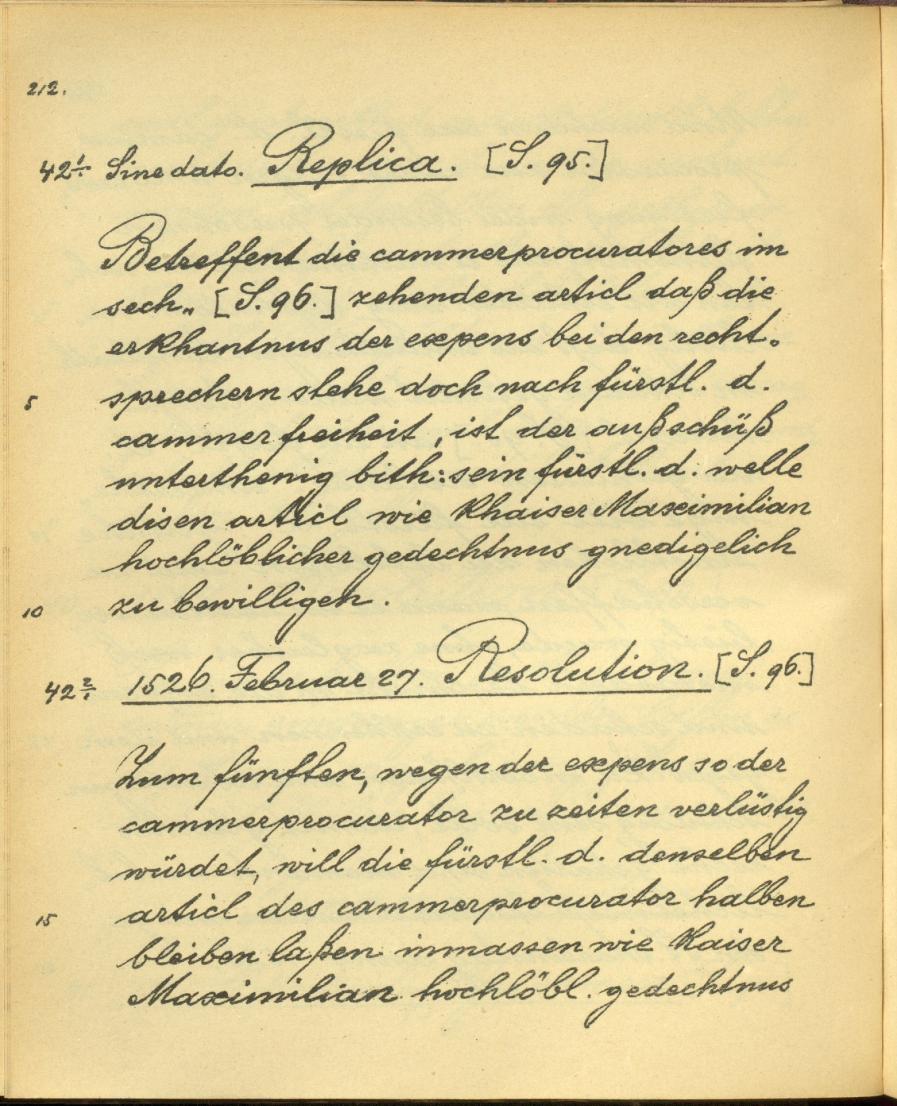 212.
42 1/. Sine dato. Replica. [S. 95.]
Betreffent die cammerprocuratores im
sech„ [S. 96.] zehenden articl daß die
erkhantnus der expens bei den recht„
5 sprechern stehe doch nach fürstl. d.
cammer freiheit, ist der außschüß
unterthenig bith: sein fürstl. d. welle
disen articl wie khaiser Maximilian
hochlöblicher gedechtnus gnedigelich
10 zu bewilligen.
42 2/. 1526. Februar 27. Resolution. [S. 96.]
Zum fünften, wegen der expens so der
cammerprocurator zu zeiten verlüstig
würdet, will die fürstl. d. denselben
15 articl des cammerprocurator halben
bleiben laßen inmassen wie kaiser
Maximilian hochlöbl. gedechtnus